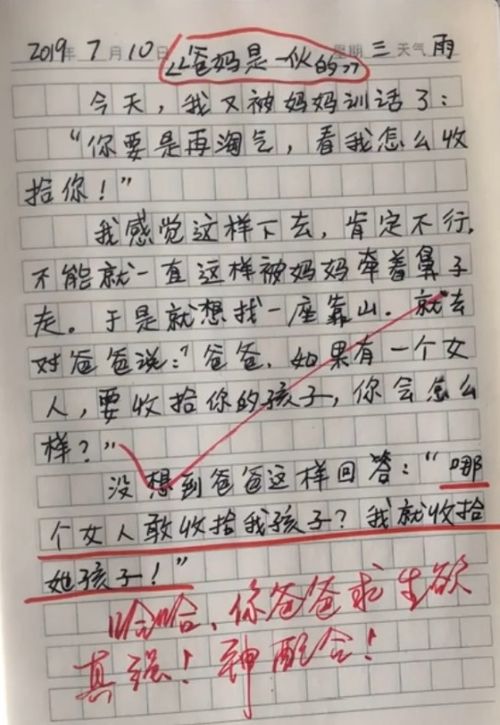 2019年7月10日 星期三 天气雨
《爸妈是一伙的》
今天，我又被妈妈训话了：
“你要是再淘气，看我怎么收
拾你！”
我感觉这样下去，肯定不行，
不能就一直这样被妈妈牵着鼻子
走。于是就想找一座靠山．就去
对爸爸说：“爸爸，如果有一个女
人，要收拾你的孩子，你会怎么
样？”
没想到爸爸这样回答：“哪
个女人敢收拾我孩子？我就收拾
她孩子！”
哈哈，你爸爸求生欲
真强！神配合！